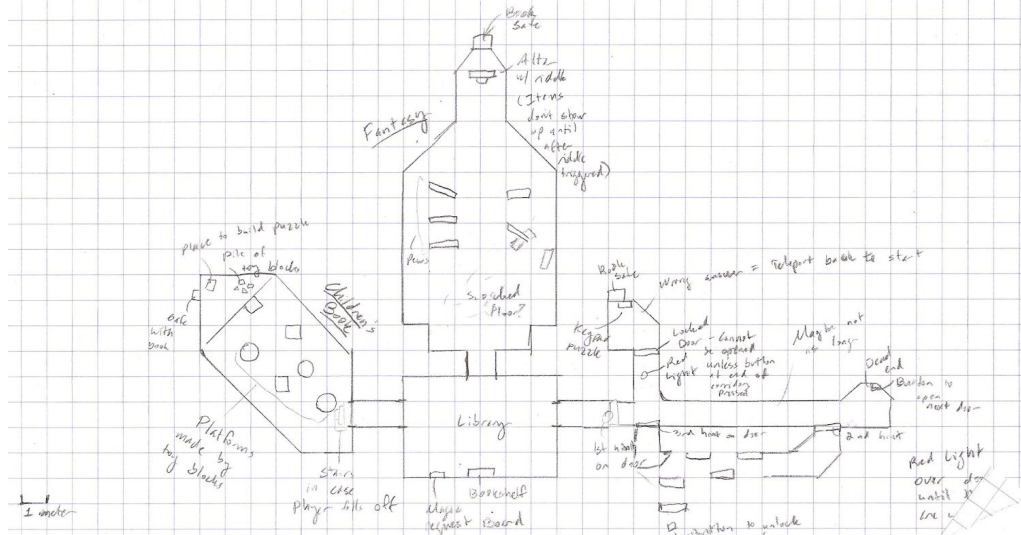 Book
Safe
Altar
w/ riddle
(Items
don't show
up until
after
riddle
triggered)
Fantasy
Pews
Scorched
Floor?
place to build puzzle
pile of
toy blocks
Safe
with
book
Children's
Book
Platforms
made by
toy blocks
Stairs
in case
Player falls off
Library
Bookshelf
Request Board
Book
Safe
Wrong answer = Teleport back to start
Keypad
puzzle
Locked
Door - Cannot
be opened
unless button
at end of
corridor
pressed
Red
Light
Maybe not
as long
Dead
end
Button to
open
next door
1st
on door
3rd hint on door
2nd hint
Red Light
over
until
button to unlock
1 meter